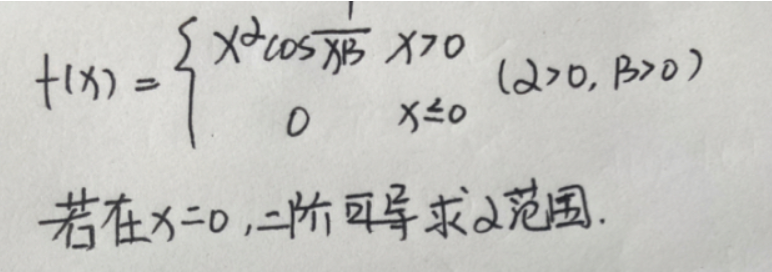 f(x) = { x^α cos 1/x^β x>0 (α>0, β>0)
0 x≤0
若在x=0,二阶可导求α范围.